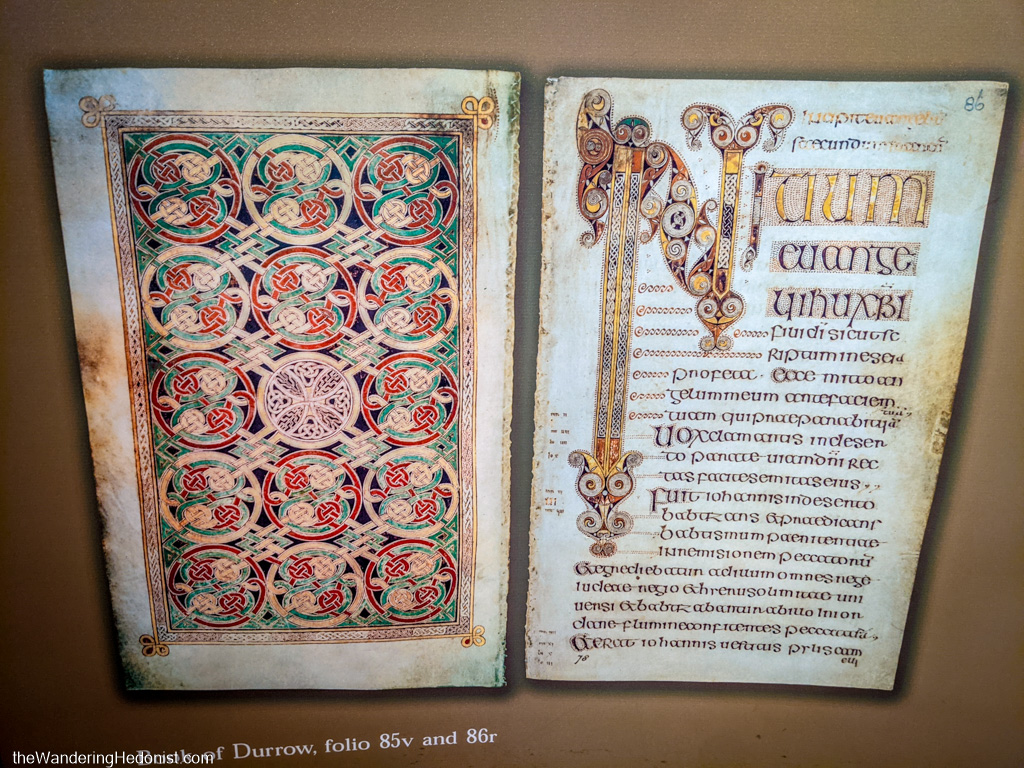 86
INITIUM
EUANGE
LII IHU XPI
filii di sicut sc
riptum in eseia
profeta · Ecce mitto an
gelum meum ante faciem
tuam qui praeparabit uiā
Uox clamantis in deser
to parate uiam dni rec
tas facite semitas eius
Fuit iohannis in deserto
babtizans et praedicans
babtismum paenitentiae
in remisionem peccatorū
iudeae regio et hierusolimitae uni
uersi et babtizabantur ab illo in ior
dane flumine confitentes peccata sua
Et erat iohannis uestitus pilis cam
eli
Book of Durrow, folio 85v and 86r
theWanderingHedonist.com